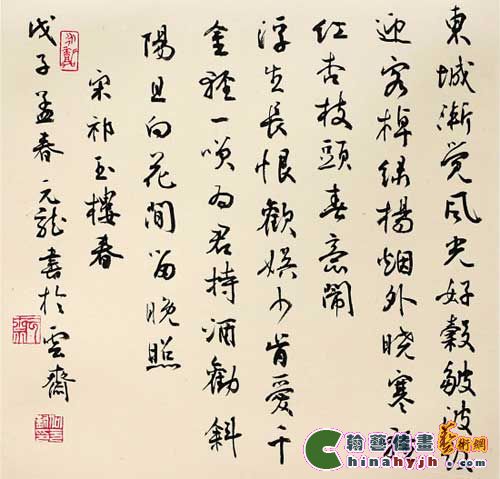 東城漸觉風光好縠皺波紋
迎客棹绿楊烟外晓寒輕
红杏枝頭春意鬧
浮生長恨歡娱少肯爱千
金輕一笑为君持酒勸斜
陽且向花間留晚照
宋祁玉樓春
戊子孟春元龍書於雲齋
翰藝佳畫 藝術網
Chinahyjh.com